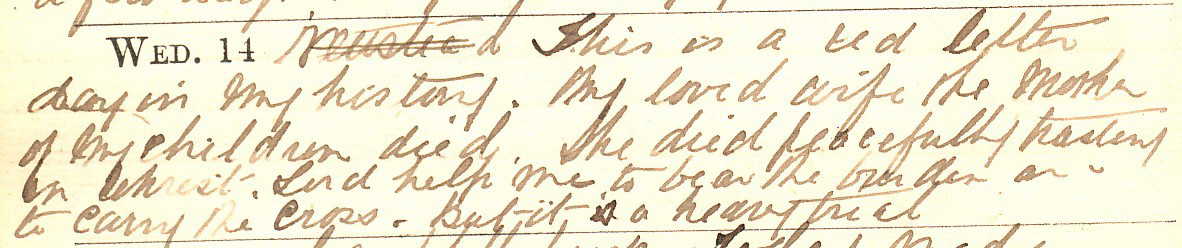 WED. 14 This is a red letter
day in my history. My loved wife the Mother
of my children died. She died peacefully trusting
in Christ. Lord help me to bear the burden an
to carry the cross - But it is a heavy trial